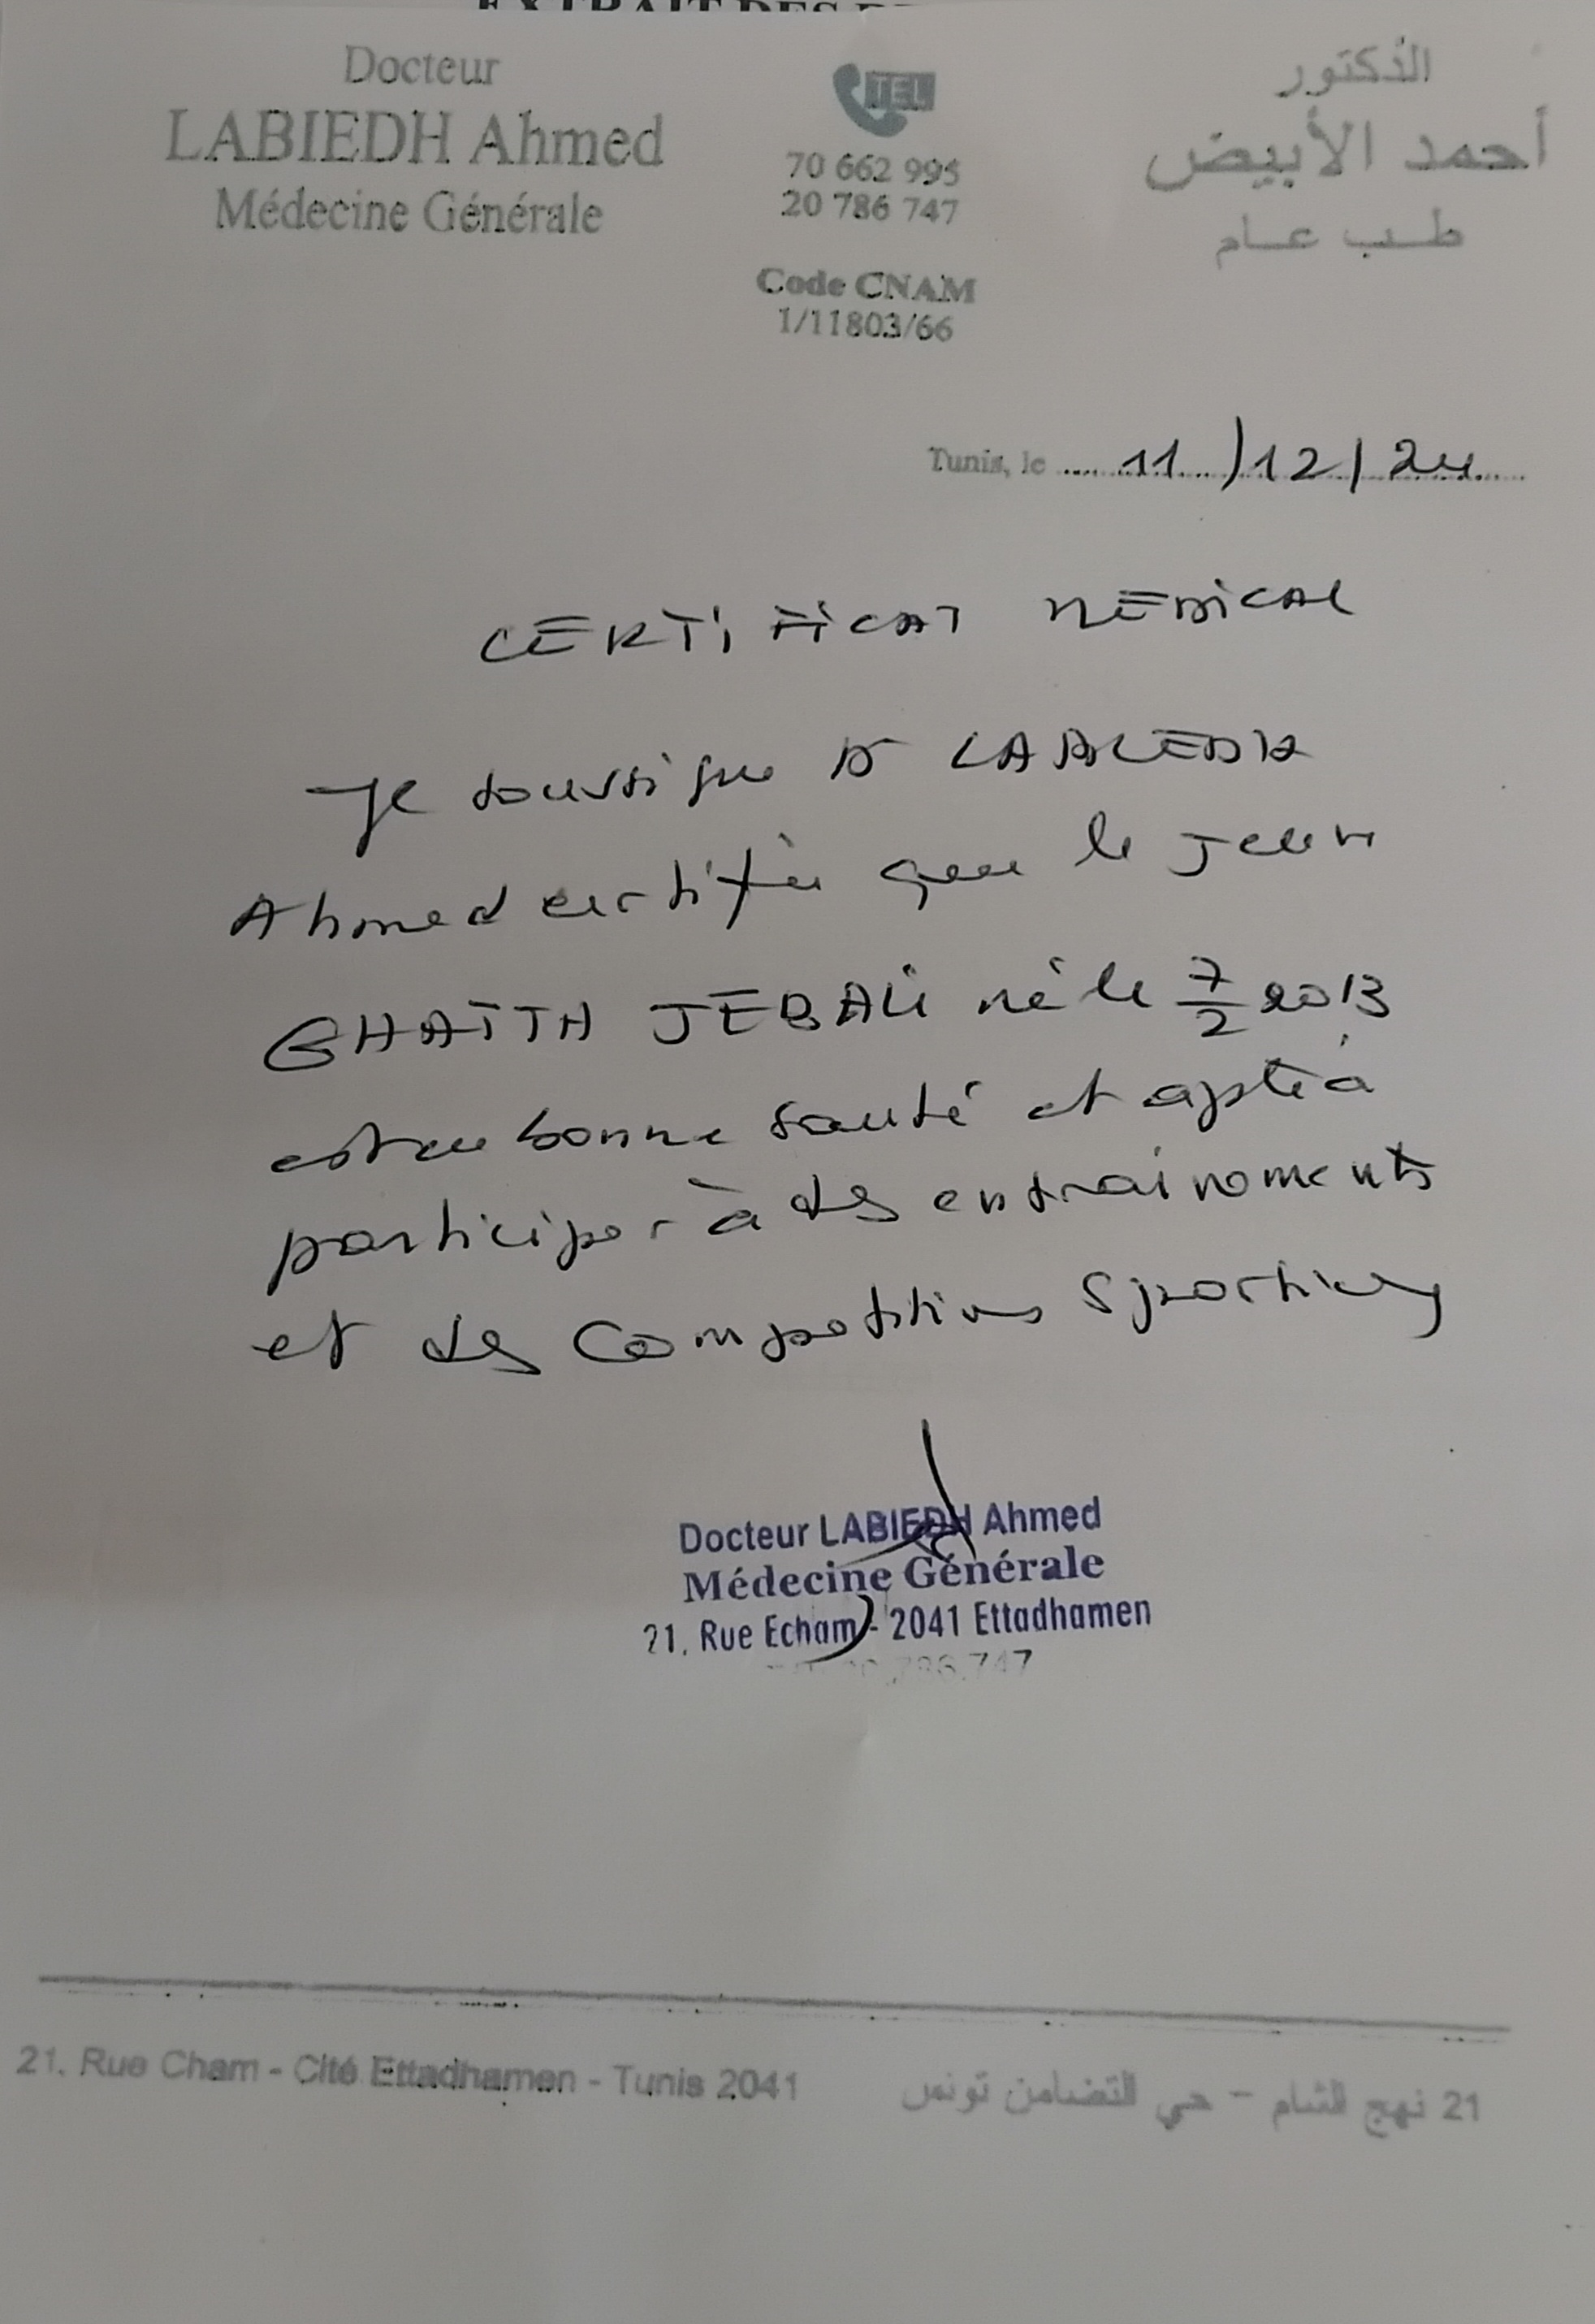 Docteur
LABIEDH Ahmed
Médecine Générale
TEL
70 662 995
20 786 747
Code CNAM
1/11803/66
الدكتور
أحمد الأبيض
طب عام
Tunis, le 11/12/24
CERTIFICAT MEDICAL
Je soussigne Dr LABIEDH
Ahmed certifie que le jeune
GHAITH JEBALI né le 7/2 2013
est en bonne santé et apte à
participer à des entrainements
et des competitions sportives
Docteur LABIEDH Ahmed
Médecine Générale
21, Rue Echam - 2041 Ettadhamen
786.747
21. Rue Cham - Cité Ettadhamen - Tunis 2041
21 نهج الشام - حي التضامن تونس